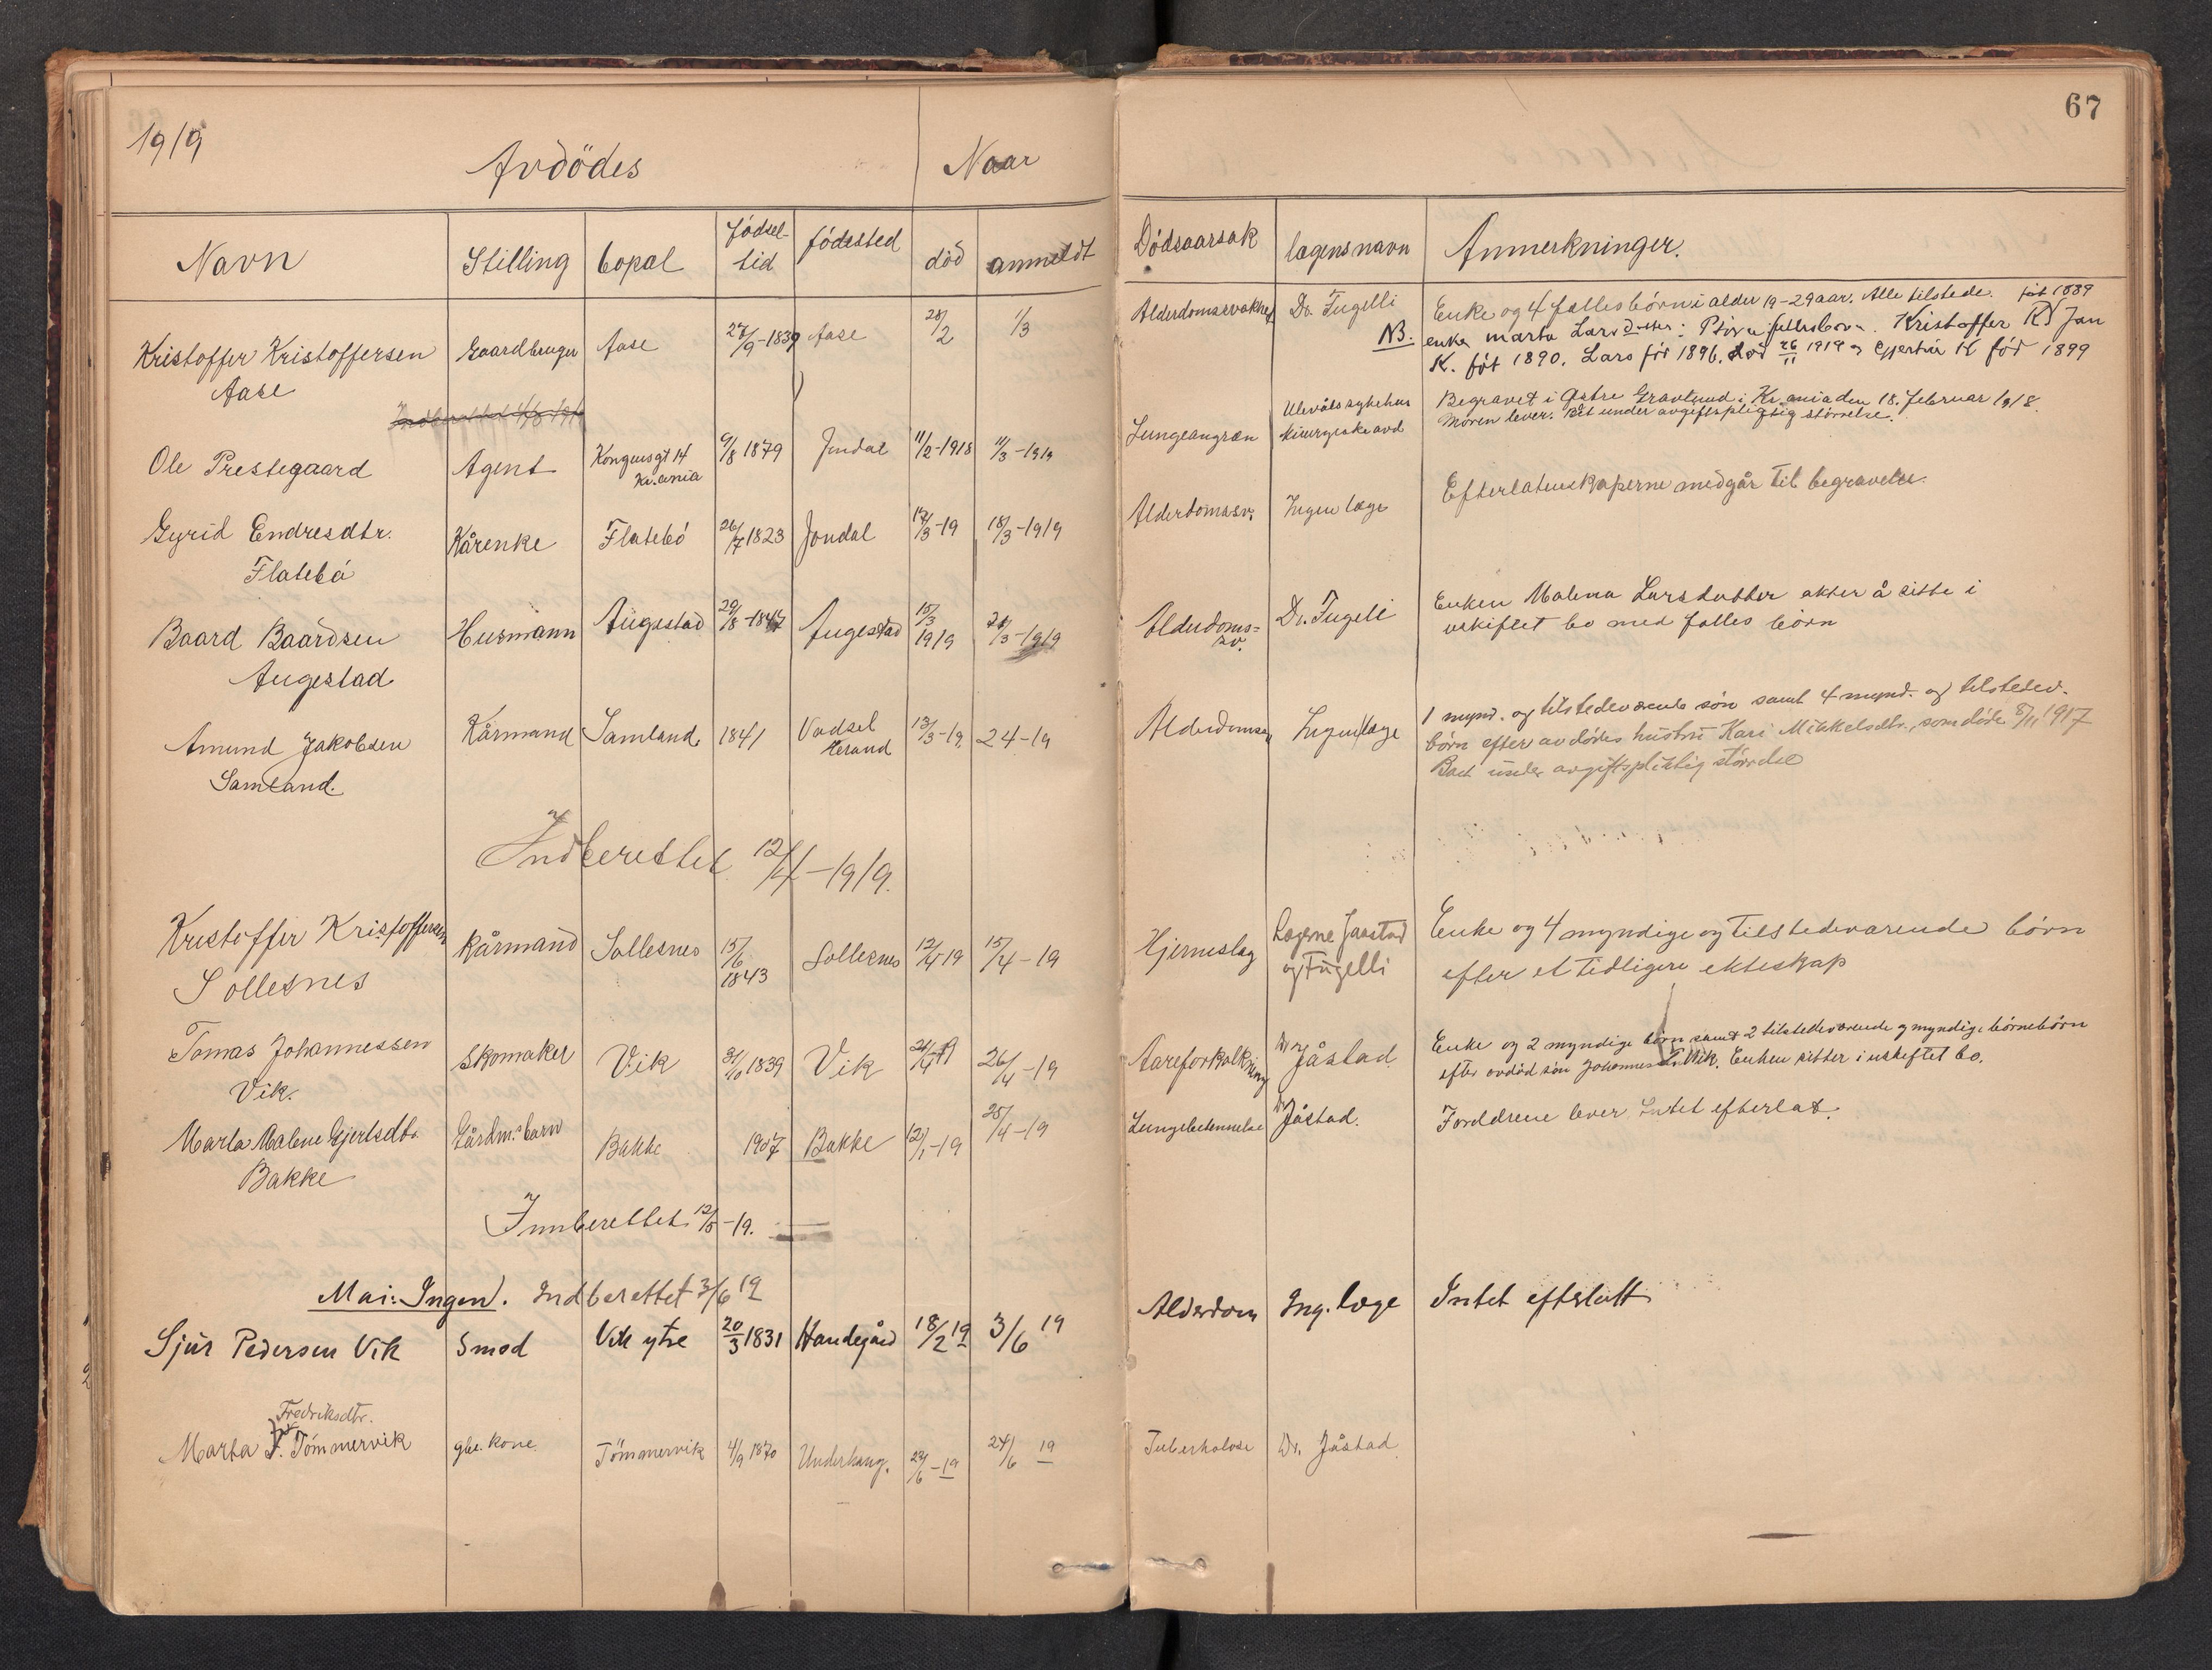 67
1919
Avdödes
Naar
Navn
Stilling
bopæl
födsel-
tid
födested
död
anmeldt
Dödsaarsak
lægens navn
Anmerkninger.
Kristoffer Kristoffersen
Aase
Gaardbruger
Aase
27/9-1839
Aase
28/2
1/3
Alderdomssvakhet
Dr. Fugelli
Enke og 4 fælles börn i alder 19-29 aar. Alle tilstede. föt 1889
NB. enke Marta Larsdatter: fellesbörn. Kristoffer K Jan
K. föt 1890. Lars föt 1896, död 26/11 1919 og Gjertrü K föt 1899
Ole Prestegaard
Agent
Kongensgt 14
Kr.ania
9/8 1879
Jondal
11/2-1918
11/3-1919
Lungeangræn
Ulevåls sykehus
kirurgiske avd
Begravet i Östre Gravlund i Kr.ania den 18. februar 1918.
Moren lever. Bet under avgiftspligtig störrelse.
Gyrid Endresdtr.
Flatebö
Kårenke
Flatebö
26/7 1823
Jondal
17/3-19
18/3-1919
Alderdomssv.
Ingen læge
Efterlatenskaperne medgår til begravelse.
Baard Baardsen
Augestad
Husmann
Augestad
29/8-1847
Augestad
15/3
1919
21/3-1919
Alderdoms=
sv.
Dr. Fugeli
Enken Malena Larsdatter akter å sitte i
uskiftet bo med fælles börn
Amund Jakobsen
Samland.
Kårmand
Samland.
1841
Vadsel
Herand
13/3-19.
24-19
Alderdomssv
Ingen læge
1 mynd. og tilstedeværende sön samt 4 mynd. og tilstedev.
börn efter avdödes hustru Kari Mikkelsdtr., som döde 8/11 1917
Boet under avgiftspliktig störrelse
Indberettet 12/4-1919.
Kristoffer Kristoffersen
Sollesnes
Kårmand
Sollesnes
15/6
1843
Sollesnes
12/4 19
15/4-19
Hjerneslag
Lægerne Jaastad
og Fugelli
Enke og 4 myndige og tilstedeværende börn
efter et tidligere ekteskap
Tomas Johannessen
Vik.
Skomaker
Vik
31/10 1839
Vik
24/4 19
26/4-19
Aareforkalkning
Dr Jåstad.
Enke og 2 myndige börn samt 2 tilstedeværende og myndige börnebörn
eftr avdöd sön Johannes T. Vik. Enken sitter i uskiftet bo.
Marta Malene Gjertsdtr.
Bakke
Gårdm.s barn
Bakke
1907
Bakke
12/1-19
28/4-19
Lungebetennelse
Dr Jåstad.
Foreldrene lever Intet efterlat.
Innberettet 12/5-19.
Mai: Ingen. Indberettet 3/6 19
Sjur Pedersen Vik
Smed
Vik ytre
20/3 1831
Handegård
18/2 19
3/6 19
Alderdom
Ing. læge
Intet efterlatt
Fredriksdtr.
Marta F. Tömmervik
gbr. kone.
Tömmervik
4/9 1870
Underhaug.
22/6-19
24/6 19
Tuberkulose
Dr. Jåstad